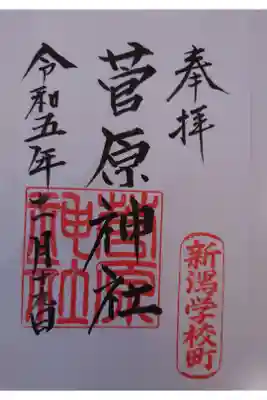 奉拝
菅原神社
菅原
神社
新潟学校町
令和五年二月十六日